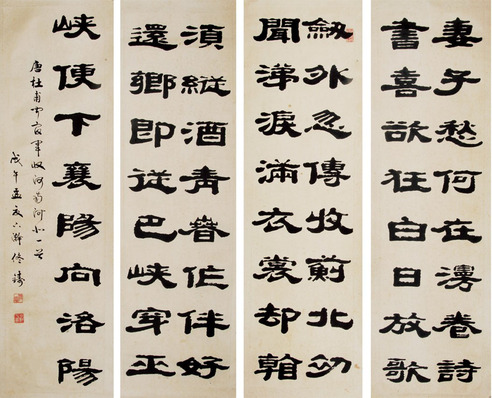 妻子愁何在漫卷詩
書喜欲狂白日放歌
劒外忽傳收薊北初
聞涕淚滿衣裳却看
須縱酒青春作伴好
還鄉即從巴峽穿巫
峽便下襄陽向洛陽
唐杜甫聞官軍收河南河北一首
戊午孟夏六